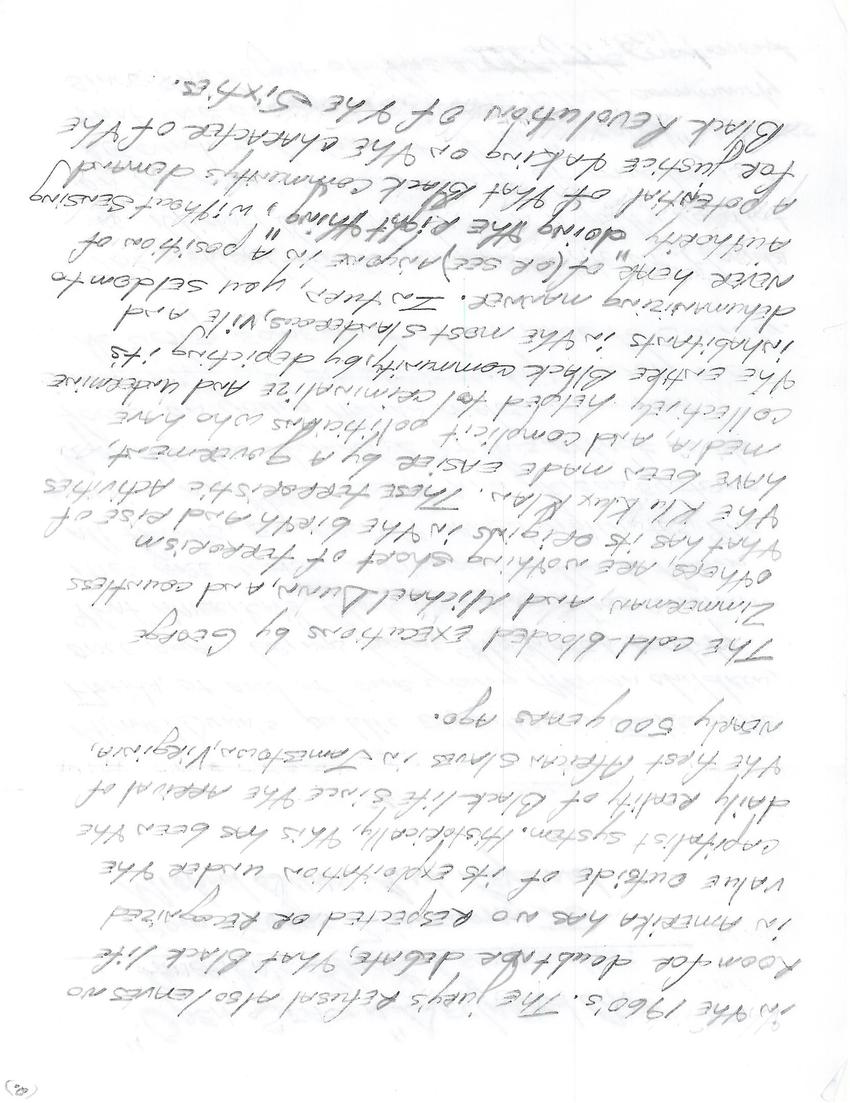 (2.)
in the 1960's. The jury's refusal also leaves no
room for doubt nor debate, that Black life
in Amerika has no respected or recognized
value outside of its exploitation under the
capitalist system. Historically, this has been the
daily reality of Black life since the arrival of
the first African slaves in Jamestown, Virginia,
nearly 500 years ago.
The cold-blooded executions by George
Zimmerman, and Michael Dunn, and countless
others, are nothing short of terrorism
that has its origins in the birth and rise of
the Klu Klux Klan. These terroristic activities
have been made easier by a government,
media, and complicit politicians who have
collectively helped to criminalize and undermine
the entire Black community, by depicting its
inhabitants in the most slanderous, vile and
dehumanizing manner. In turn, you seldom to
never hear of (or see) anyone in a position of
authority "doing the right thing", without sensing
a potential of that Black community's demand
for justice taking on the character of the
Black Revolution of the Sixties.